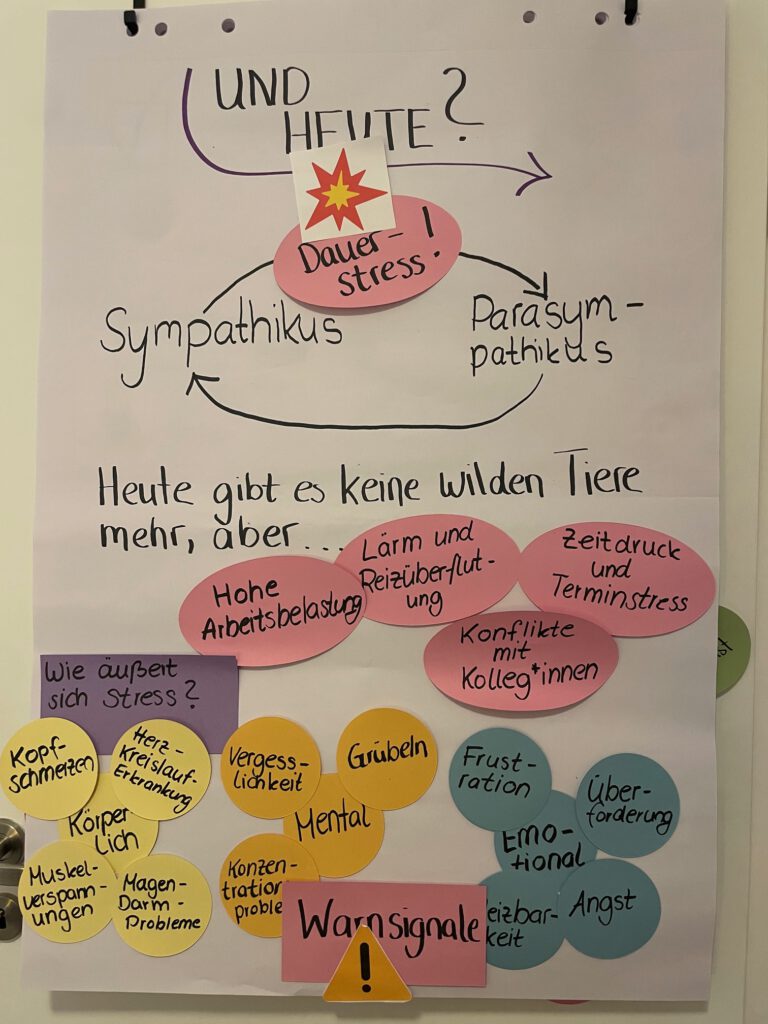 UND
HEUTE?
Dauer-
stress!
Sympathikus
Parasym-
pathikus
Heute gibt es keine wilden Tiere
mehr, aber...
Hohe
Arbeitsbelastung
Lärm und
Reizüberflut-
ung
Zeitdruck
und
Terminstress
Konflikte
mit
Kolleg*innen
Wie äußert
sich Stress?
Kopf-
schmerzen
Herz-
Kreislauf-
Erkrankung
Körper
Lich
Muskel-
verspann-
ungen
Magen-
Darm-
Probleme
Vergess-
lichkeit
Grübeln
Mental
Konzen-
tration
proble
Frust-
ration
Über-
forderung
Emo-
tional
eizbar-
keit
Angst
Warnsignale
!